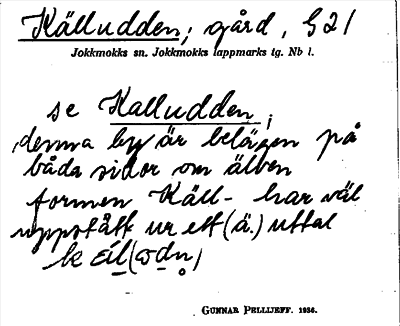 Källudden, gård, G21
Jokkmokks sn. Jokkmokks lappmarks tg. Nb l.
se Kalludden,
denna by är belägen på
båda sidor om älven
formen Käll- har väl
uppstått ur ett (ä.) uttal
GUNNAR PELLIJEFF. 1956.